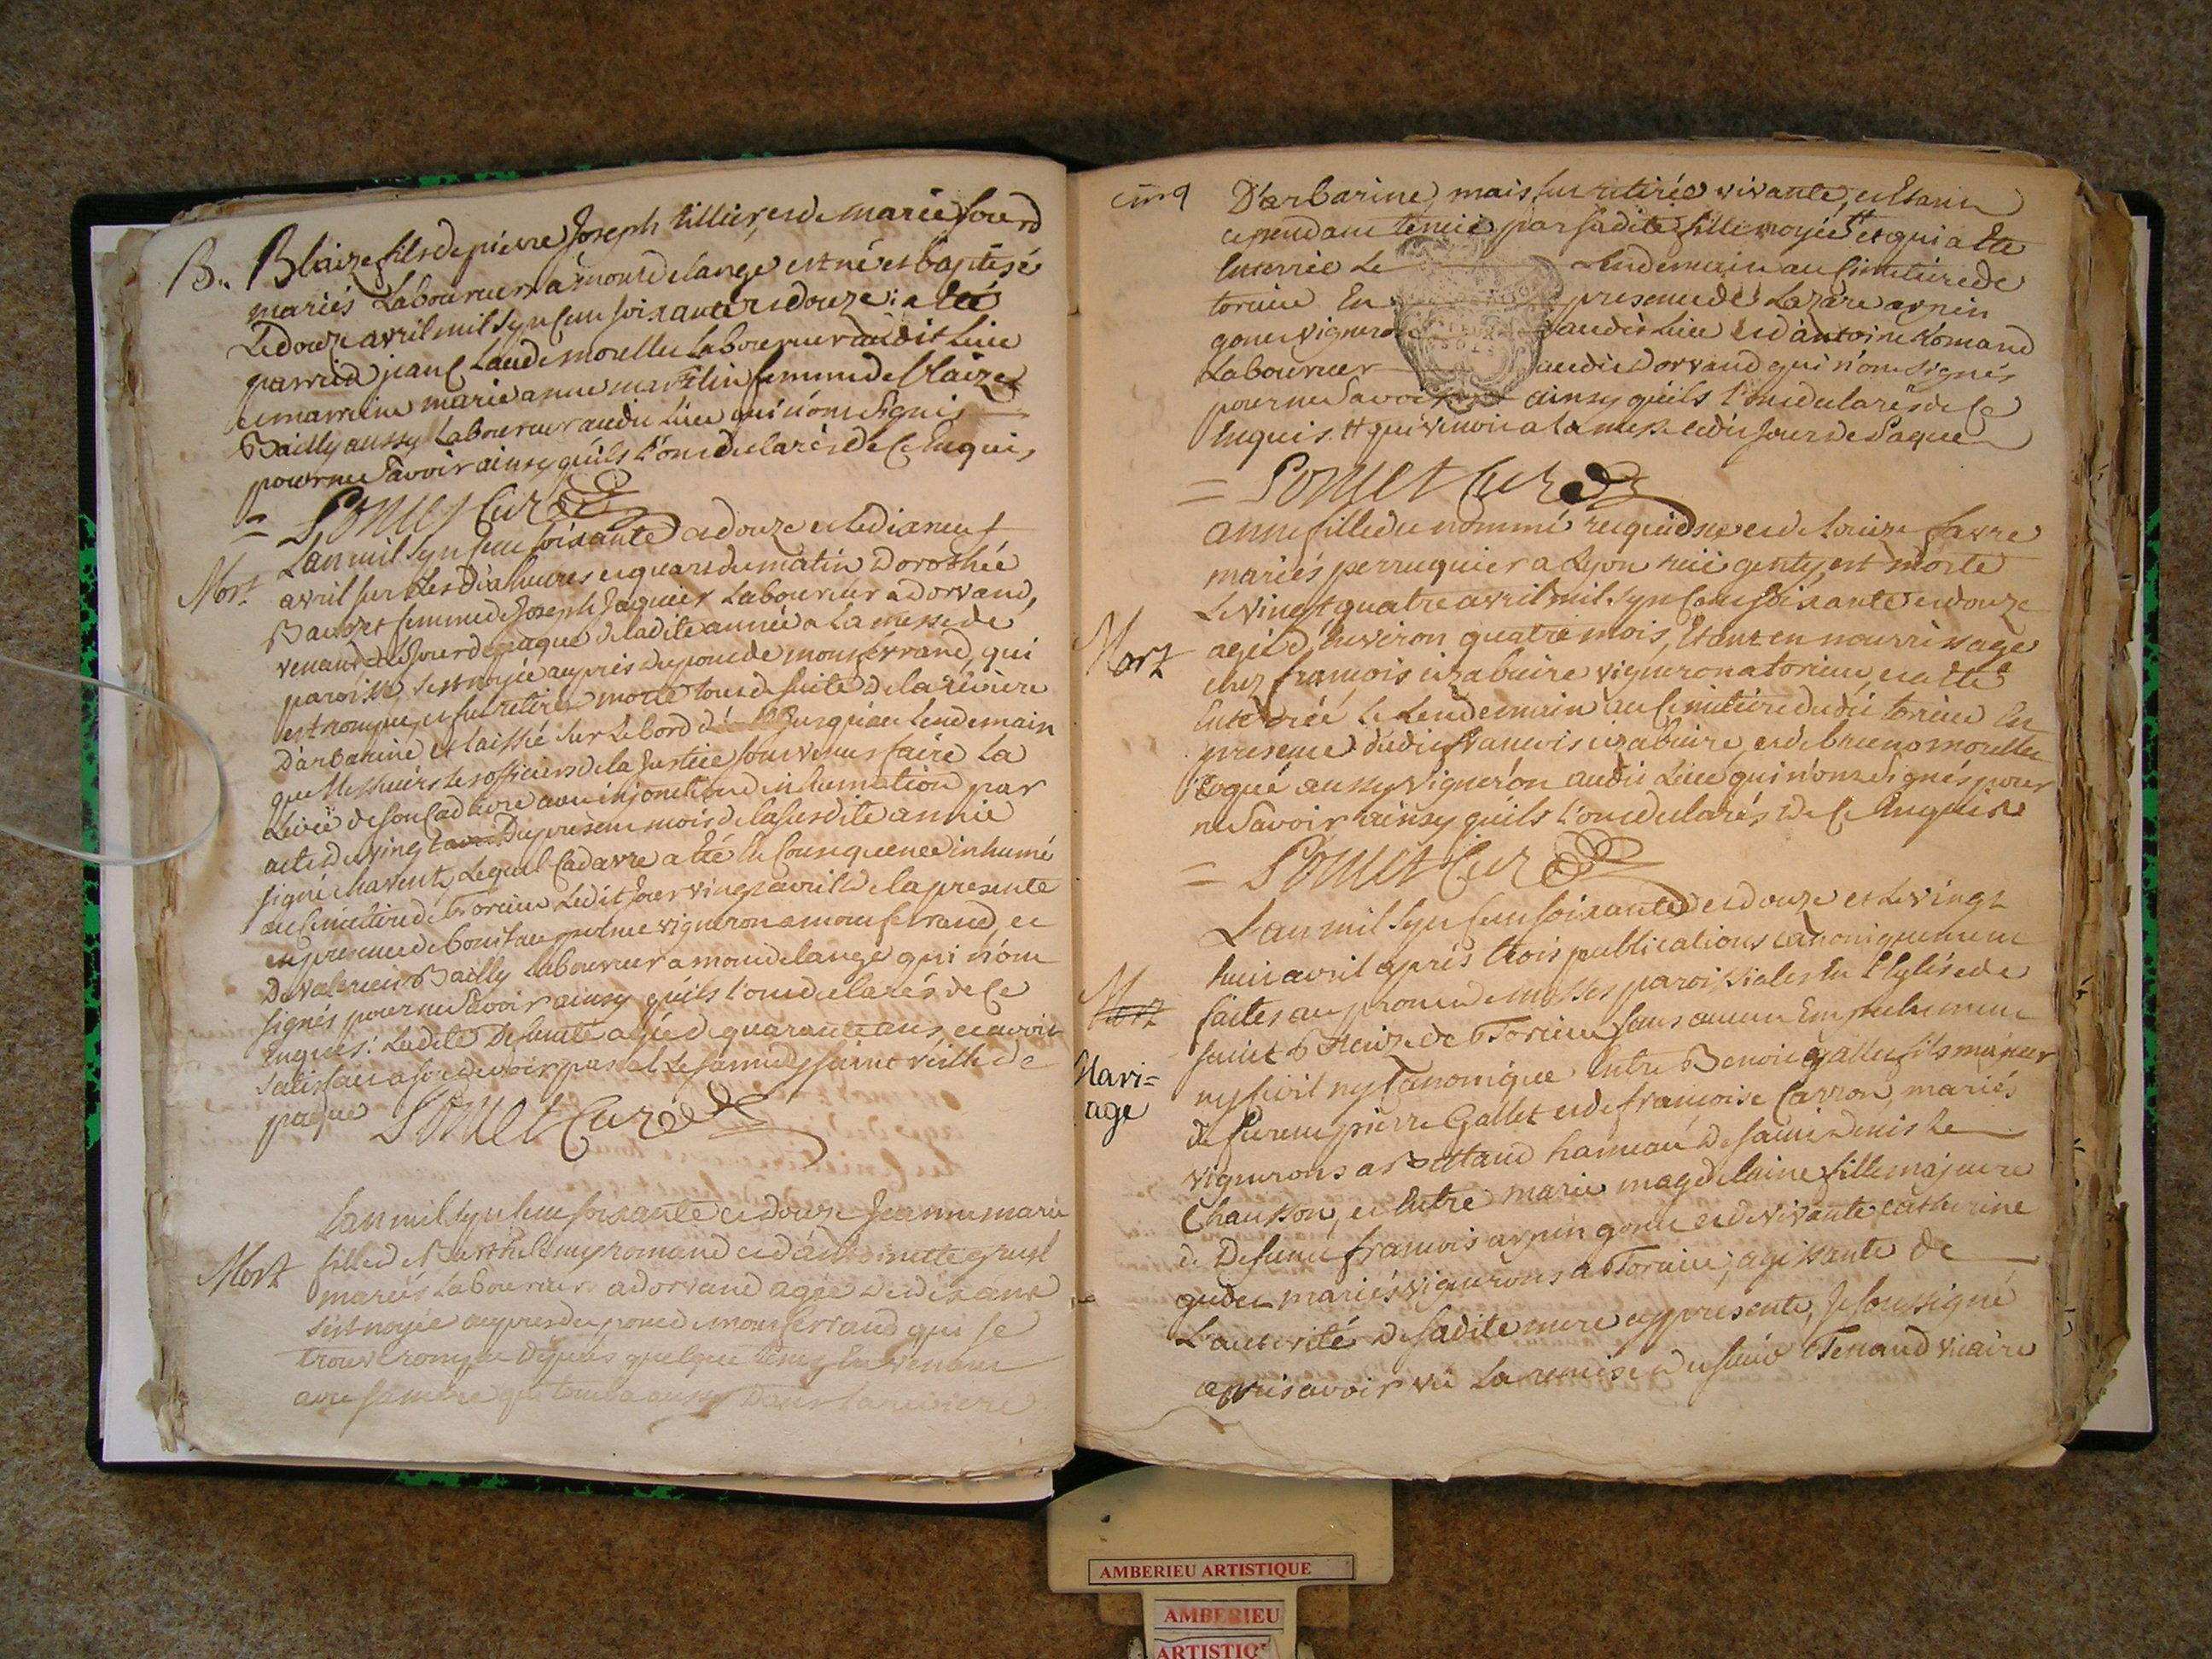 B. Blaize fils de pierre Joseph tillier, et de marie fourd
mariés Laboureurs a montdelange est né et baptisé
Le douze avril mil sept cent soixante et douze: a Eté
parrein jean Claude morellet Laboureur audit Lieu
et marreine marie anne martelin femme de blaize
Bailly aussy Laboureur audit Lieu qui n'ont signés
pour ne savoir ainsy qu'ils L'ont declarés de Ce Enquis,
= Ponset Curé
Mort L'an mil sept cent soixante et douze et le dixneuf
avril sur Les dix heures et quart du matin Dorothée
femme de Joseph Jaquier Laboureur a Dorvand,
venant Le Jour de paque de ladite année a La messe de
paroisse, s'est noyée auprès du pont de montferrand, qui
est rompu, et fut retirée morte tout de suite de la riviere
D'arbarine et laissée sur Le bord jusqu'au Lendemain
que Messieurs Les officiers de la Justice sont venus faire La
Levée de son Cadavre avec injonction d'inhumation par
acte du vingt du present mois de la susdite année
signé charent, Lequel Cadavre a été En Consequence inhumé
au Cimetiere de Torcieu Ledit Jour vingt avril de la presente
en presence de vigneron a montferrand, et
De valerien Bailly Laboureur a montdelange qui n'ont
signés pour ne savoir ainsy qu'ils L'ont declarés de Ce
Enquis: Ladite Defunte agée de quarante ans, et avoit
satisfait a son devoir pascal Le samedy saint veille de
paque Ponset Curé
L'an mil sept cent soixante et douze Jeanne marie
Mort fille de Barthelemy romand et d'antoinette
mariés Laboureurs a dorvand agée de dix ans
s'est noyée auprès du pont de montferrand qui se
trouve rompu depuis quelque tems En venant
avec sa mere qui tomba aussy Dans La riviere
cinq D'arbarine, mais fut retirée vivante, en Etant
cependant tenuë par sadite fille noyée # et qui a Eté
Enterrée Le Lendemain au Cimetiere de
torcieu En presence de Lazare arpin
gonet vigneron audit Lieu et d'antoine Romand
Laboureur audit Dorvand qui n'ont signés
pour ne savoir ainsy qu'ils L'ont declarés de Ce
Enquis. # qui venoit a La messe Ledit Jour de Paque
= Ponset Curé
anne fille du nommé et de Louize favre
mariés perruquier a Lyon ruë genty, est morte
Mort Le vingt quatre avril mil sept Cent soixante et douze
agée d'Environ quatre mois, Etant en nourrissage
chez françois vigneron a torcieu, et a Eté
Enterrée Le Lendemain au Cimetiere dudit torcieu En
presence dudit françois et de bruno morellet
aussy vigneron audit Lieu qui n'ont signés pour
ne savoir ainsy qu'ils L'ont declarés de Ce Enquis
= Ponset Curé
L'an mil sept cent soixante et douze et Le vingt
huit avril après trois publications canoniquement
Mort faites au prone de messes paroissiales En L'Eglise de
saint de Torcieu sans aucun Empechement
Mari= ny Civil ny Canonique Entre Benoit gallet fils majeur
age de furent pierre Gallet et de françoise Carron, mariés
vignerons a Bettand hameau de saint Denis Le
Chausson, et Entre marie magdelaine fille majeure
de Defunt françois arpin gonet et de vivante catherine
mariés vignerons a Torcieu, agissante de
L'autorité de sadite mere cy presente, Je soussigné
après avoir vu La remise du sieur Tenand vicaire
AMBERIEU ARTISTIQUE
AMBERIEU
ARTISTIQ